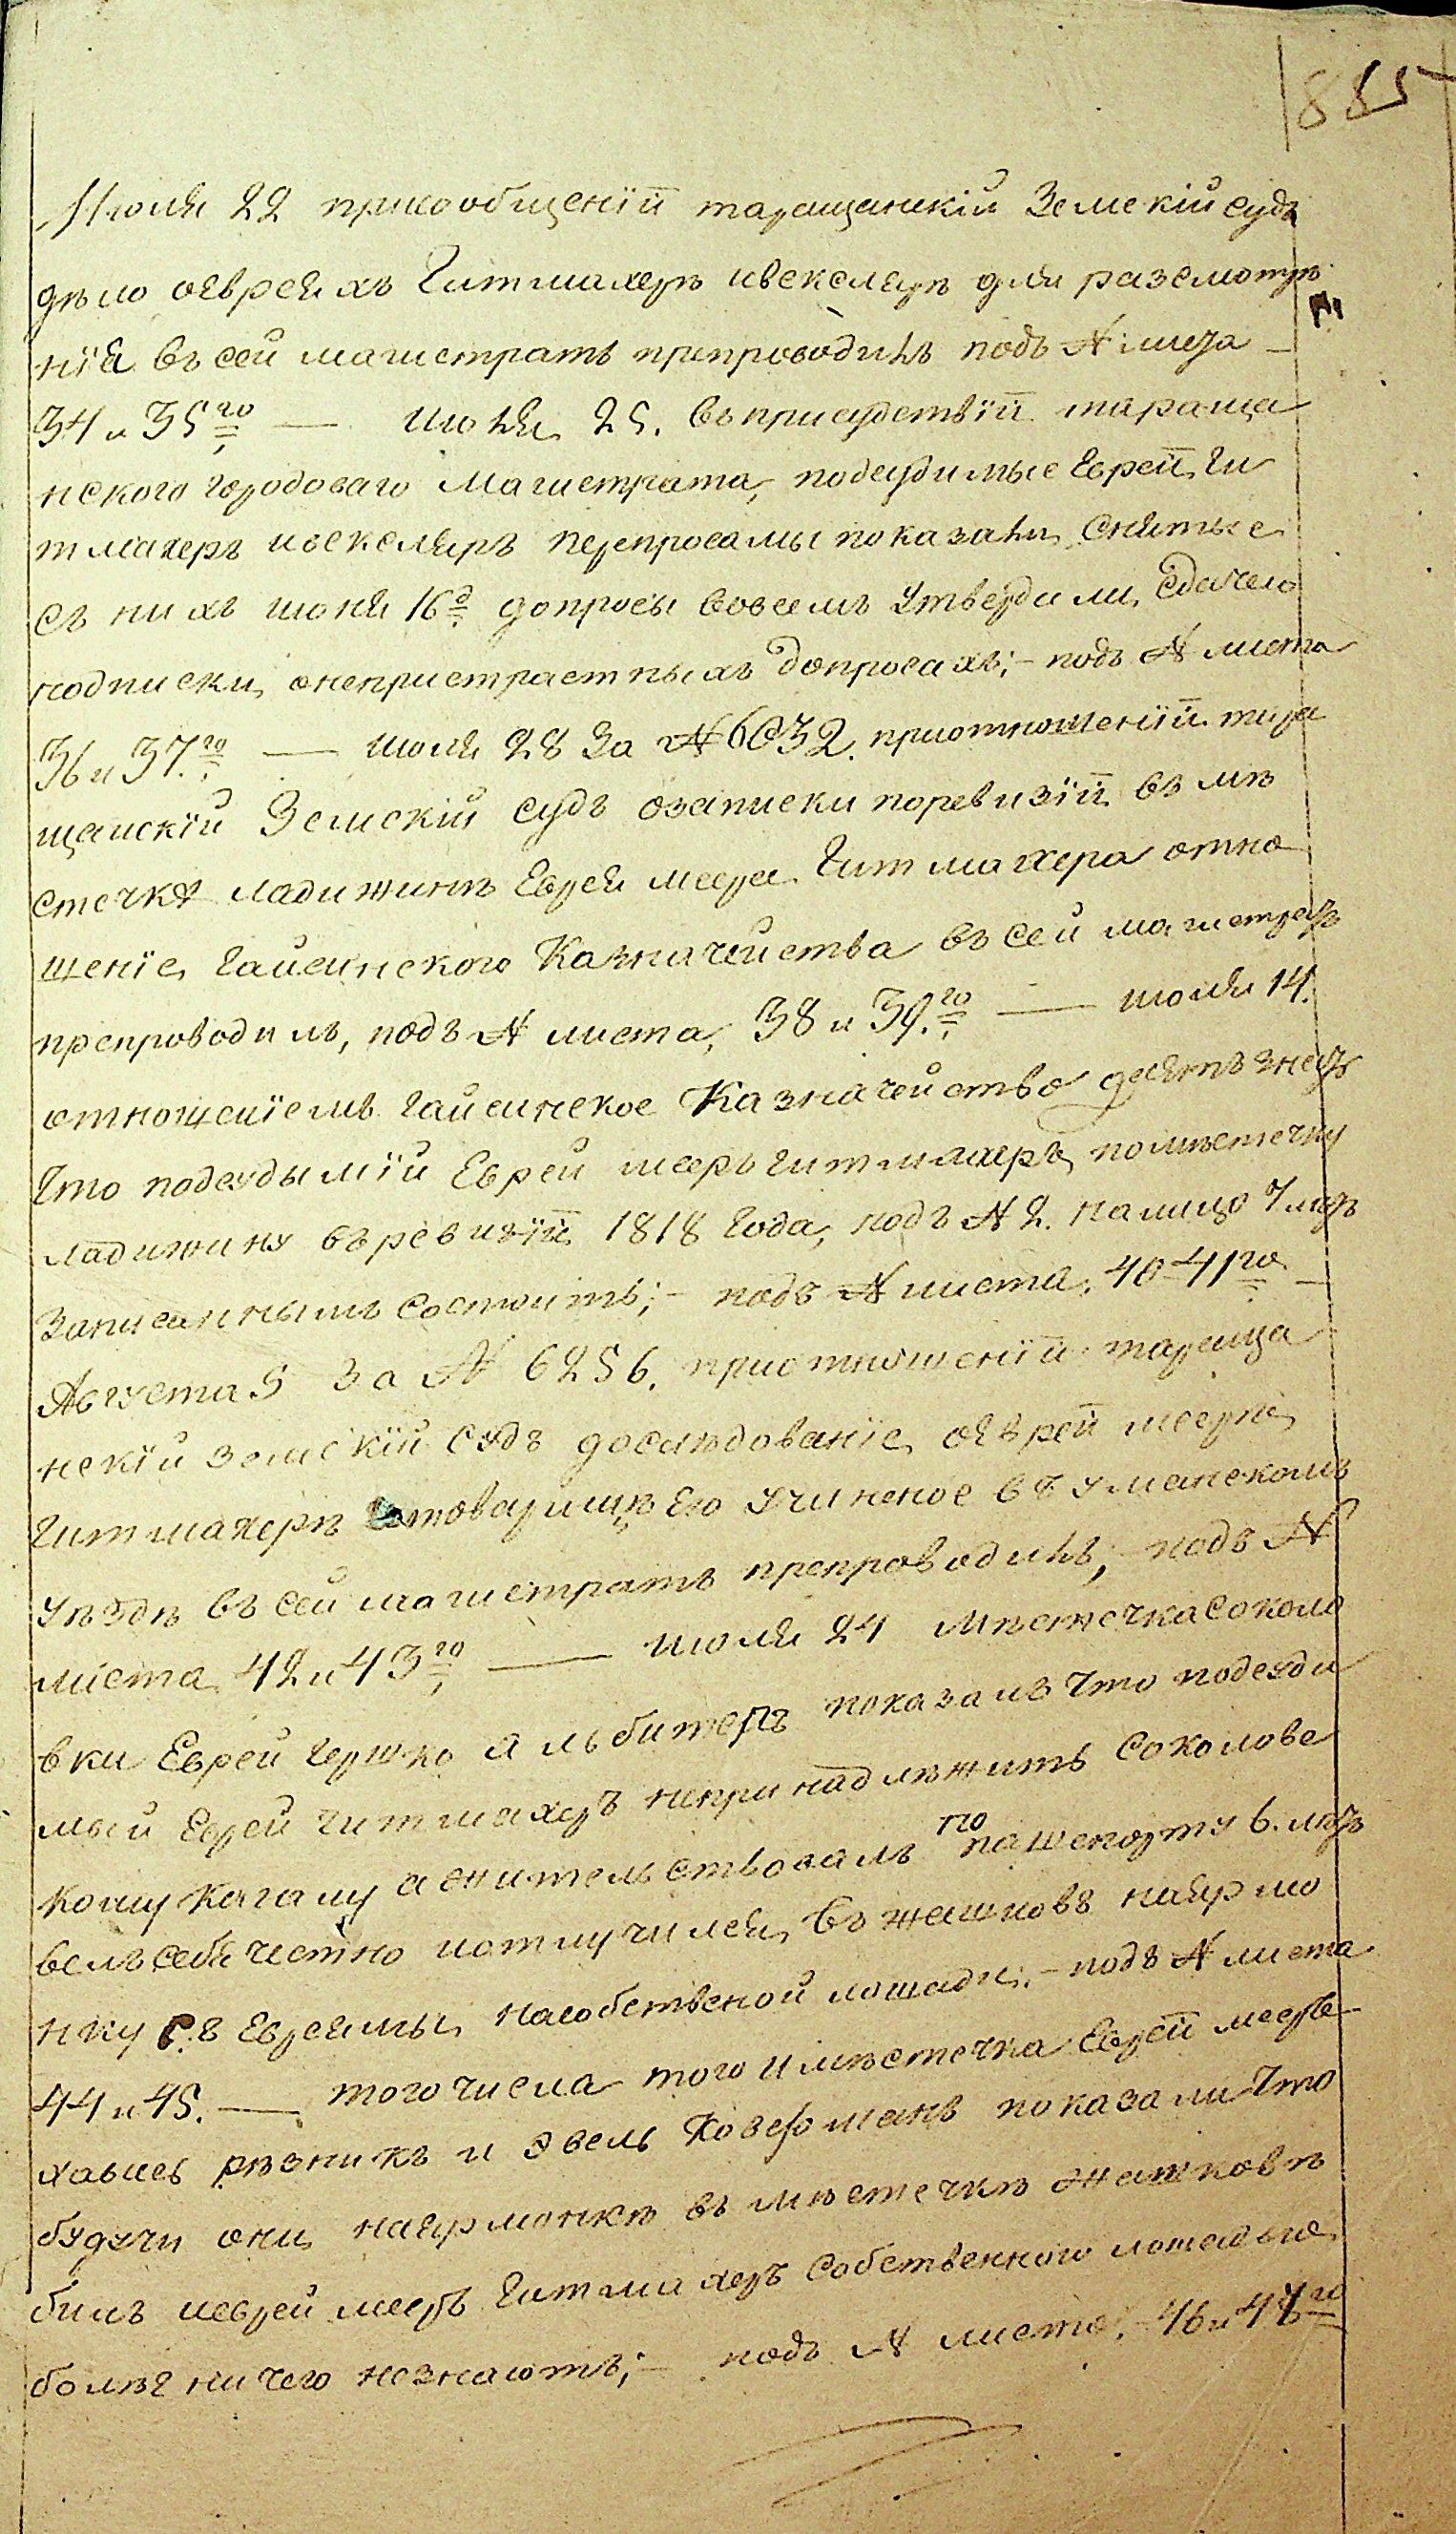 885
Июля 22 присообщеніи таращанскій Земскій судъ
дѣло оевреяхъ Гитмахерѣ ивекслярѣ для разсмотрѣ
нія въ сей магистратъ препроводилъ подъ № листа
34 и 35го — июля 25. въприсудствіи тараща
нского городоваго Магистрата, подсудимые Евреи Ги
тмахеръ ивексляръ перепросамы показали Снятые
съ нихъ июня 16го допросы вовсемъ утвердили, Сдачею
подписки, онепристрастныхъ допросахъ; – подъ № листа
36 и 37го — июля 28 За № 6032. приотношеніи тара
щанскій Земскій судъ озаписки поревизіи въ мѣ
стечкѣ ладижинѣ Еврея меера Гитмахера отно
шеніе, гайсинского Казначейства въ сей магистратъ
препроводилъ, подъ № листа, 38 и 39го — июля 14.
отношеніемъ гайсинское Казначейство даетъ знать
что подсудымій Еврей меерь гитмахеръ, помѣстечку
ладижину въревизіи 1818 года, подъ № 2. налицо
записаннымъ состоитъ; – подъ № листа. 40 41го —
Августа 5 За № 6256. приотношеніи тараща
нскій земскій судъ дослѣдованіе, оеврей меерѣ
гитмахерѣ товарищѣ Ею учиненое въ уманскомъ
уѣздѣ въ сей магистратъ препроводилъ; подъ №
листа 42 и 43го — июля 24 мѣстечка соколо
вки Еврей гершко альбитеръ показалъ что подсуди
мый Еврей гитмахеръ непринадлѣжитъ Соколовс
кому кагалу а жительствовалъ по пашпорту 6.
велъ себя честно иотлучился, въ жашковъ наярмо
нку с. Евреямы, насобственой лошади; – подъ № листа
44 и 45. — того числа того имѣстечка Евреи меерь
хаимъ рѣзникъ и Эвель показали что
будучи они, наярмонкѣ въ мѣстечкѣ жашковѣ
билъ иеврей меерь Гитмахеръ Собственною лошадью
болѣе ничего незнаютъ; – подъ № листа. 46 и 47го